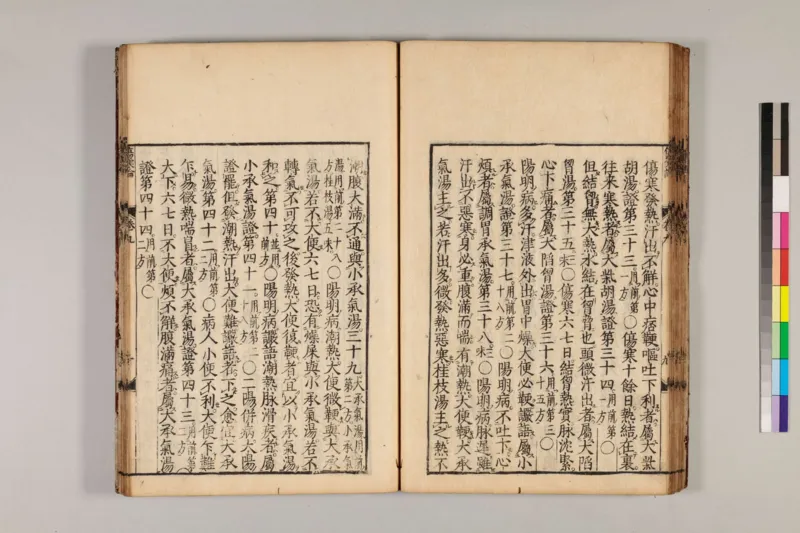 傷寒發熱汗出不解心中痞鞕嘔吐下利者屬大柴
胡湯證第三十三用前第一方○傷寒十餘日熱結在裏
往來寒熱者屬大柴胡湯證第三十四用前第一方○
但結胷無大熱水結在胷脅也頭微汗出者屬大陷
胷湯第三十五三味○傷寒六七日結胷熱實脉沈緊
心下痛者屬大陷胷湯證第三十六用前第三十五方○
陽明病多汗津液外出胃中燥大便必鞕讝語屬小
承氣湯證第三十七用前第二十八方○陽明病不吐下心
煩者屬調胃承氣湯第三十八三味○陽明病脉遲雖
汗出不惡寒身必重腹滿而喘有潮熱大便鞕大承
氣湯主之若汗出多微發熱惡寒桂枝湯主之熱不
潮腹大滿不通與小承氣湯三十九大承氣湯用前第二方小承氣
湯用前第二十八方桂枝湯五味○陽明病潮熱大便微鞕與大承
氣湯若不大便六七日恐有燥屎與小承氣湯若不
轉氣不可攻之後發熱大便復鞕者宜以小承氣湯
和之第四十並用前方○陽明病讝語潮熱脉滑疾者屬
小承氣湯證第四十一用前第二十八方○二陽併病太陽
證罷但發潮熱汗出大便難讝語者下之愈宜大承
氣湯第四十二用前第二方○病人小便不利大便乍難
乍易微熱喘冒者屬大承氣湯證第四十三用前第二方○
大下六七日不大便煩不解腹滿痛者屬大承氣湯
證第四十四用前第二方○